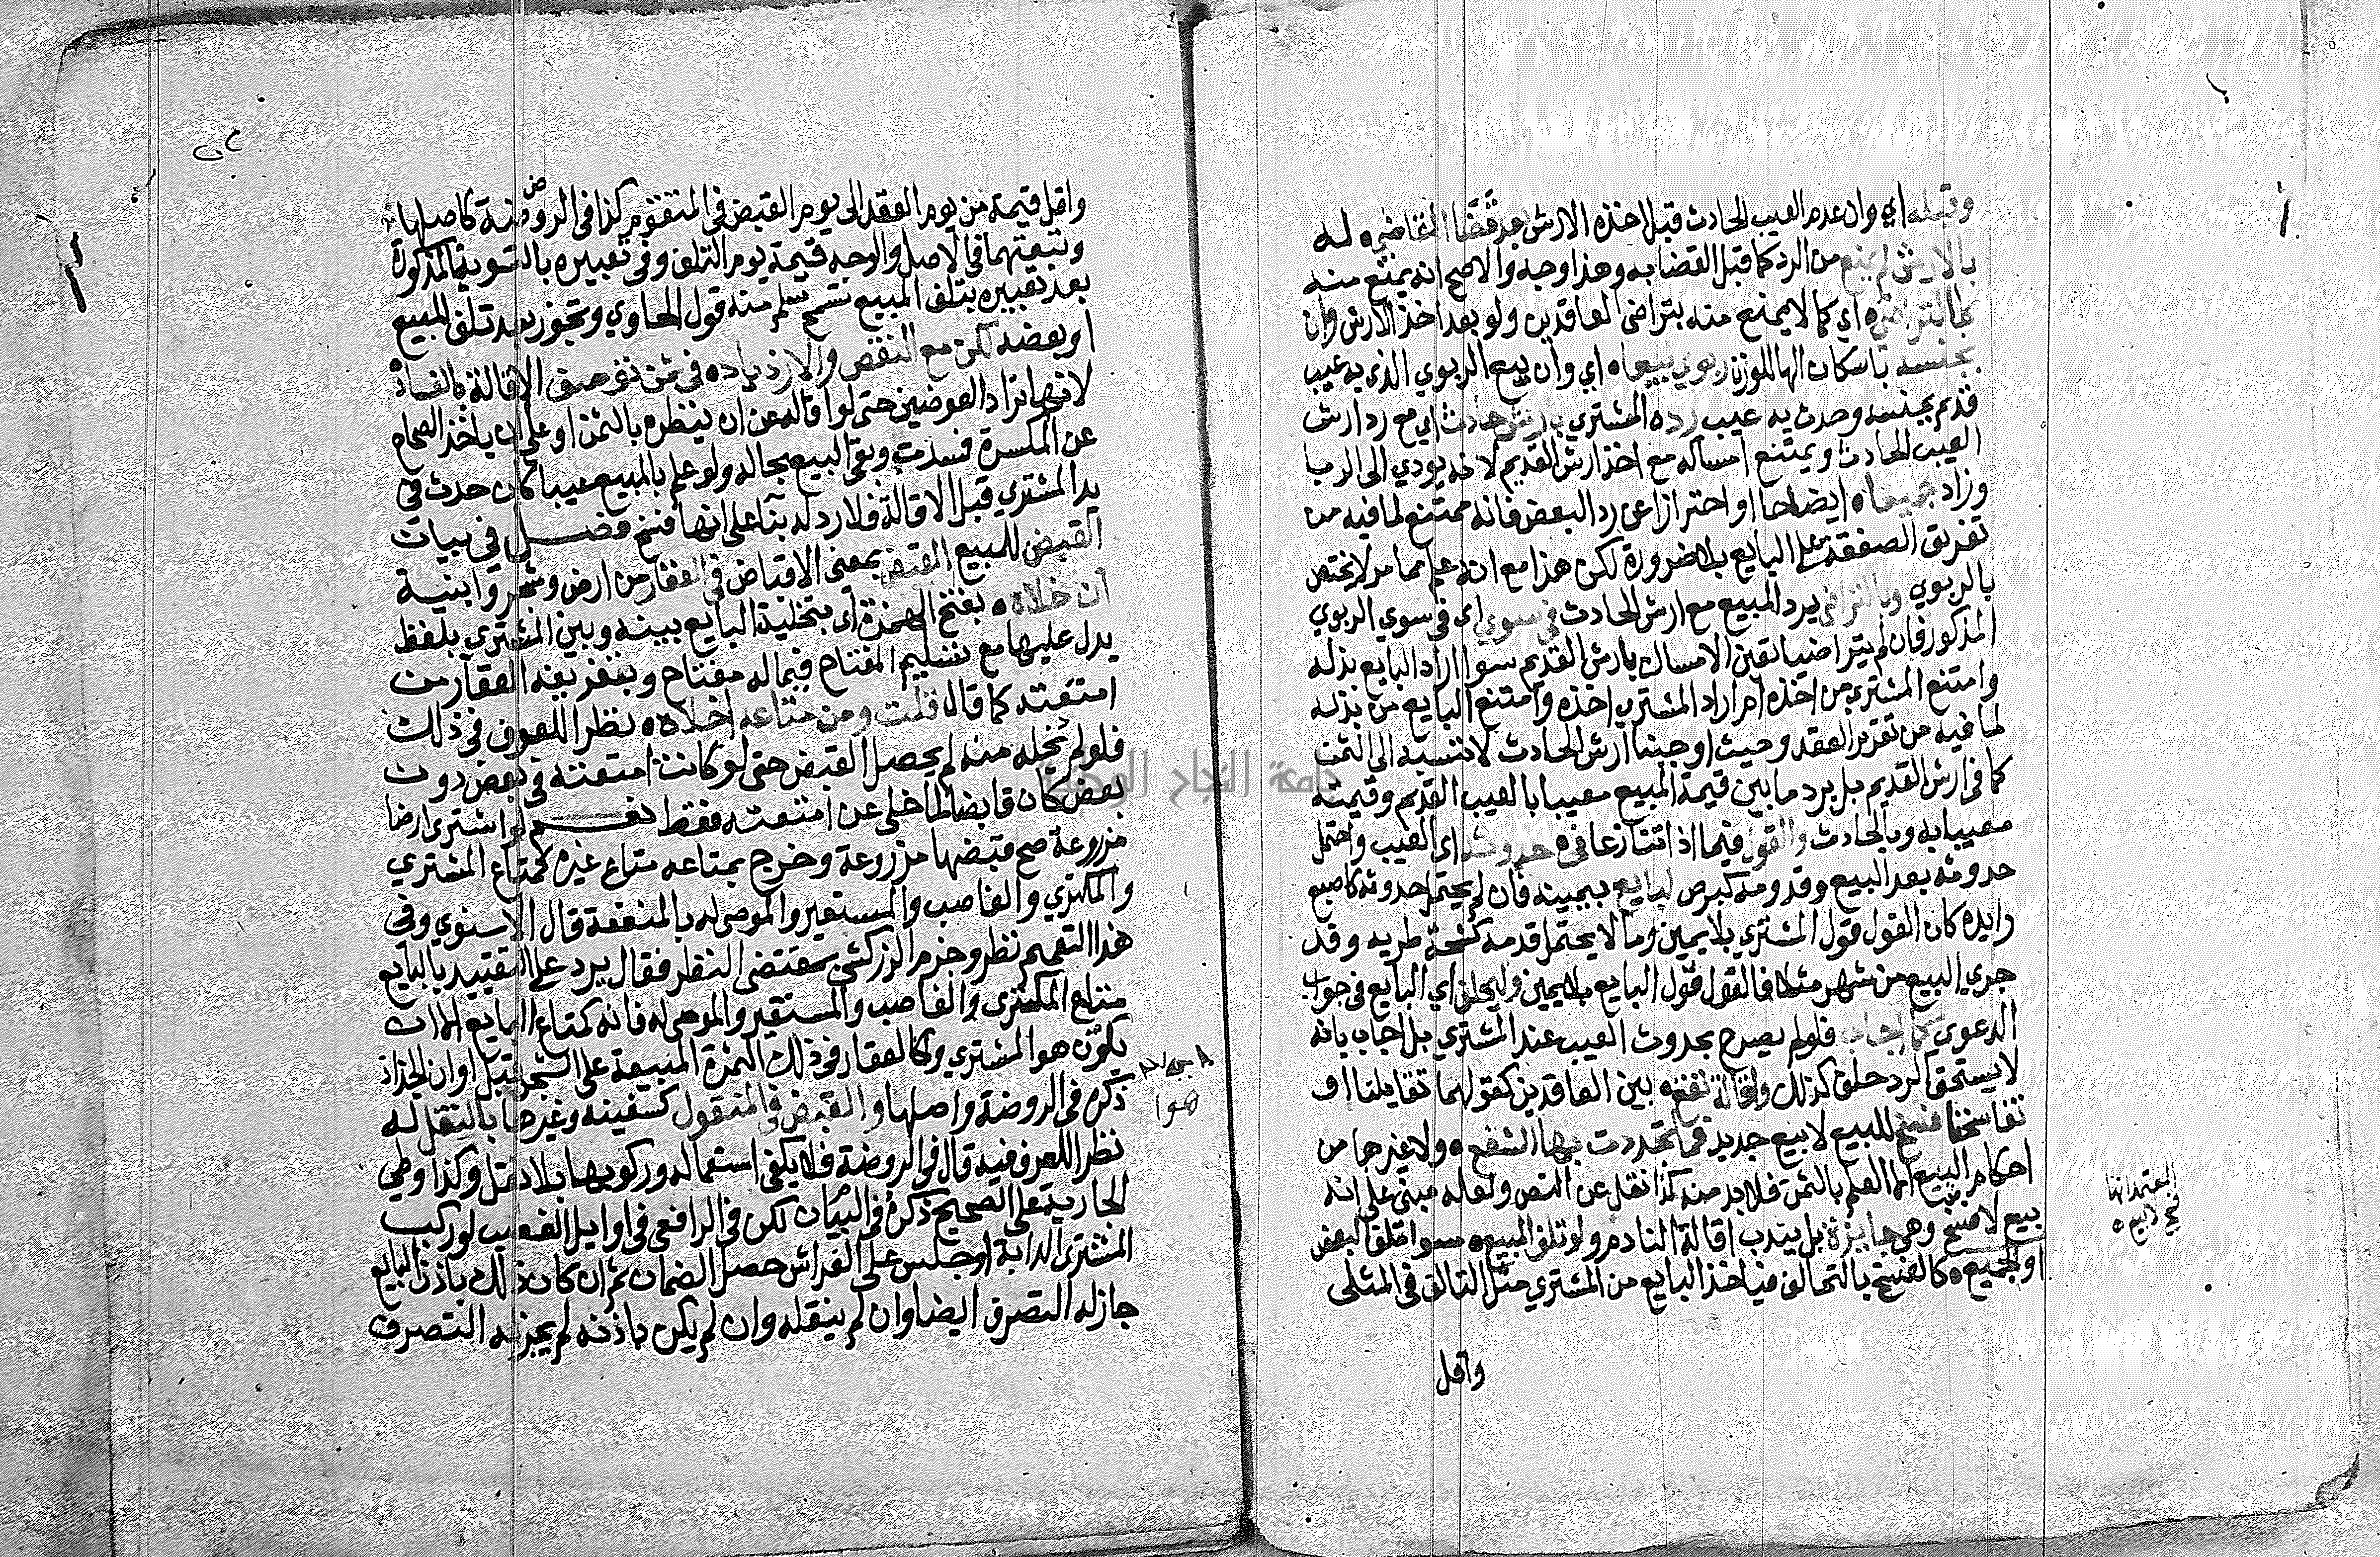 وقبله اي وان عدم العيب الحادث قبل اخذه الارش بعد قضا القاضي له
بالارش لم يمنع من الرد كما قبل القضا به وهذا وجه والاصح انه يمتنع منه
كما بالتراضي اي كما لا يمنع منه بتراضي العاقدين ولو بعد اخذ الارش وان
بجنسه باسكان الها للوزن ربوي بيعا اي وان بيع الربوي الذي به عيب
قديم بجنسه وحدث به عيب رده المشتري بارش حادث اي مع رد ارش
العيب الحادث ويمتنع امساكه مع اخذ ارش القديم لانه يودي الى الربا
وزاد جميعا ايضاحا او احترازا عن رد البعض فانه ممتنع لما فيه من
تفريق الصفقة على البايع بلا ضرورة لكن هذا مع انه علم مما مر لا يختص
بالربوي وبالتراضي يرد المبيع مع ارش الحادث في سوي اي في سوي الربوي
المذكور فان لم يتراضيا تعين الامساك بارش القديم سوا اراد البايع بذله
وامتنع المشتري من اخذه ام اراد المشتري اخذه وامتنع البايع من بذله
لما فيه من تقرير العقد وحيث اوجبنا ارش الحادث لا ننسبه الى الثمن
كما في ارش القديم بل يرد ما بين قيمة المبيع معيبا بالعيب القديم وقيمته
معيبا به وبالحادث والقول فيما اذا تنازعا في حدوث اي العيب واحتمل
حدوثه بعد البيع وقدومه كبرص لبايع بيمينه فان لم يحتمل حدوثه كاصبع
زايده كان القول قول المشتري بلا يمين وما لا يحتمل قدمه كشجة طريه وقد
جري البيع من شهر مثلا فالقول قول البايع بلا يمين وليحلف اي البايع في جواب
الدعوي كما اجاب فلو لم يصرح بحدوث العيب عند المشتري بل اجاب بانه
لا يستحق الرد حلف كذلك واقالة تقع بين العاقدين كقولهما تقايلنا او
تفاسخنا فسخ للبيع لا بيع جديد فما تجددت بها الشفع ولا غيرها من
احكام البيع اما العلم بالثمن فلا بد منه كذا نقل عن النص ولعله مبني على انه
بيع لا فسخ وهي جايزة بل يندب اقالة النادم ولو تلف المبيع سوا تلف البعض
او الجميع كالفسخ بالتحالف فياخذ البايع من المشتري مثل التالف في المثلى
المعتمد انها
فسخ لا بيع
واقل
واقل قيمة من يوم العقد الى يوم القبض في المتقوم كذا في الروضة كاصلها
وتبعتهما في الاصل والوجه قيمة يوم التلف وفي تعبيره بالتسوية المذكورة
بعد تعبيره بتلف المبيع تسمح سلم منه قول الحاوي وتجوز بعد تلف المبيع
او بعضه لكن مع النقص والازدياده في ثمن نقض الاقالة بالفساد
لانها تراد العوضين حتى لو اقاله عن ان ينظره بالثمن او على ان ياخذ الصحاح
عن المكسرة فسدت وبقي البيع بحاله ولو علم بالمبيع عيبا كان حدث في
يد المشتري قبل الاقالة فلا رد له بنآ على انها فسخ فصل في بيان
القبض للمبيع القبض بمعنى الاقباض في العقار من ارض وشجر وابنية
ان خلاه بفتح الهمزة اي بتخلية البايع بينه وبين المشتري بلفظ
يدل عليها مع تسليم المفتاح فيما له مفتاح وبتفريغه العقار من
امتعته كما قال قلت ومن متاعه اخلاه نظرا للعرف في ذلك
فلو لم يخله منه لم يحصل القبض حتى لو كانت امتعته في بعض دون
بعض كان قابضا لما خلى عن امتعته فقط نعم لو اشترى ارضا
مزروعة صح قبضها مزروعة وخرج بمتاعه متاع غيره كمتاع المشتري
والمكتري والغاصب والمستعير والموصى له بالمنفعة قال الاسنوي وفي
هذا التعميم نظر وجزم الزركشي بمقتضى النظر فقال يرد على التقييد بالبايع
متاع المكتري والغاصب والمستعير والموصى له فانه كمتاع البايع الا ان
يكون هو المشتري وكالعقار في ذلك الثمرة المبيعة على الشجر قبل اوان الجذاذ
ذكره في الروضة واصلها والقبض في المنقول كسفينه وغيرها بالنقل له
نظرا للعرف فيه قال في الروضة فلا يكفي استعماله وركوبها بلا نقل وكذا وطي
الجارية على الصحيح ذكره في البيان لكن في الرافعي في اوايل الغصب لو ركب
المشتري الدابة او جلس على الفراش حصل الضمان ثم ان كان ذلك باذن البايع
جاز له التصرف ايضا وان لم ينقله وان لم يكن باذنه لم يجز له التصرف
جامعة النجاح الوطنية